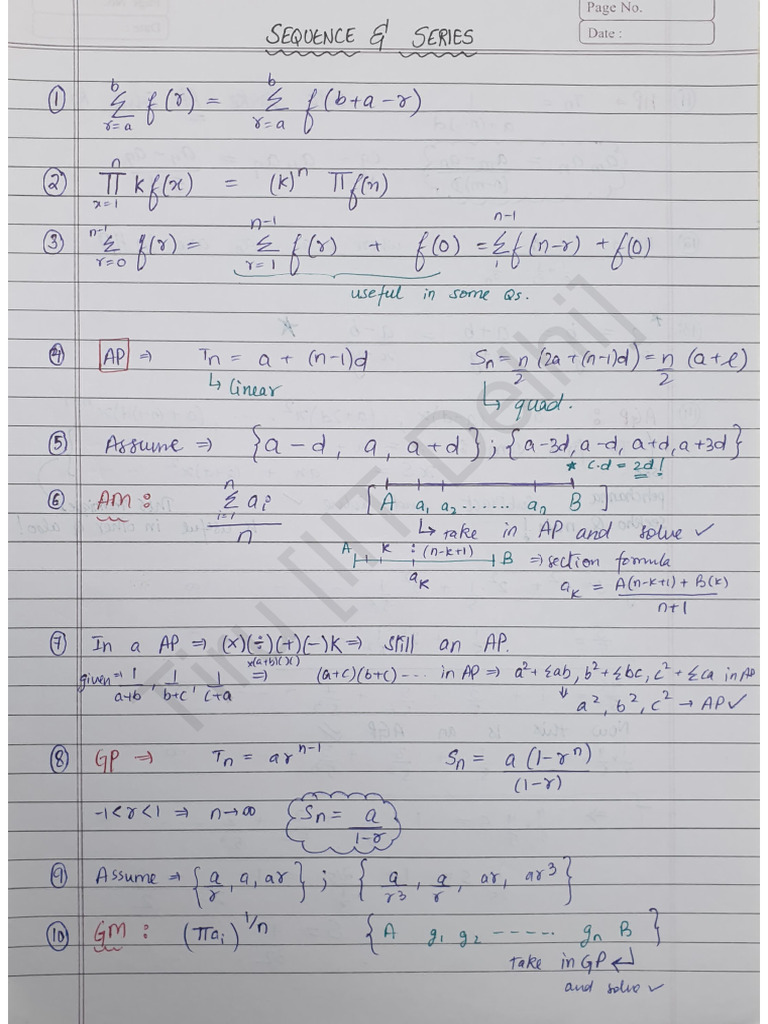 Page No.
Date :
SEQUENCE & SERIES
① b Σ r=a f(r) = b Σ r=a f(b+a-r)
② n Π x=1 kf(x) = (k)ⁿ Πf(n)
③ n-1 Σ r=0 f(r) = n-1 Σ r=1 f(r) + f(0) = n-1 Σ 1 f(n-r) + f(0)
useful in some Qs.
④ AP ⇒ Tn = a + (n-1)d Sn = n/2 (2a+(n-1)d) = n/2 (a+l)
↳ linear ↳ quad.
⑤ Assume ⇒ {a-d, a, a+d} ; {a-3d, a-d, a+d, a+3d}
* C.d = 2d!
⑥ AM : n Σ i=1 ai / n [A a₁ a₂ ...... an B]
↳ take in AP and solve ✓
A k : (n-k+1) B ⇒ section formula
aK aK = A(n-k+1) + B(k) / n+1
⑦ In a AP ⇒ (x)(÷)(+)(-)K ⇒ still an AP.
given ⇒ 1/a+b, 1/b+c, 1/c+a ×(a+b)( )( ) ⇒ (a+c)(b+c) ---- in AP ⇒ a²+Σab, b²+Σbc, c²+Σca in AP
⇓ a², b², c² → AP✓
⑧ GP ⇒ Tn = arⁿ⁻¹ Sn = a(1-rⁿ) / (1-r)
-1<r<1 ⇒ n→∞ Sn = a / 1-r
⑨ Assume → {a/r, a, ar} ; {a/r³, a/r, ar, ar³}
⑩ GM : (Πai)^1/n {A g₁ g₂ ------ gn B}
Take in GP ↵
and solve ✓
Tiru [IIT Delhi]